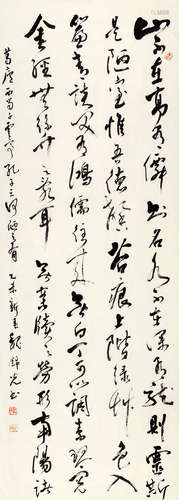 山不在高有僊則名水不在深有龍則靈斯
是陋室惟吾德馨苔痕上階綠艸色入
簾青談笑有鴻儒往來無白丁可以調素琴閱
金經無絲竹之亂耳無案牘之勞形南陽諸
葛廬西蜀子雲亭孔子云何陋之有 乙未新春